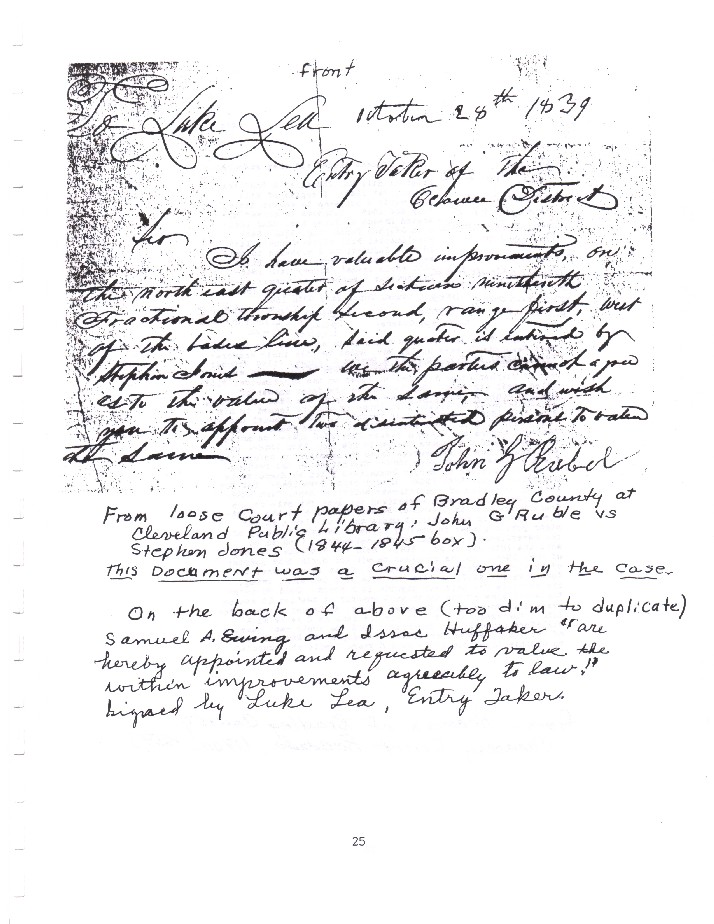 front
To Luke Lea October 28th 1839
Entry Taker of the
Ocowee District
Sir
I have valuable improvements, on
the north east quater of Section nineteenth
Fractional township Second, range first, west
of the basis line, said quater is entired by
Stephen Jones — the parties cannot agree
as to the value of the same, and wish
you to appoint two disintrested persons to value
the Same
John G Rubel
From loose Court papers of Bradley County at
Cleveland Public Library: John G Ruble vs
Stephen Jones (1844-1845 box).
This Document was a Crucial one in the Case.
On the back of above (too dim to duplicate)
Samuel A. Ewing and Issac Huffaker "are
hereby appointed and requested to value the
within improvements agreeably to law."
Signed by Luke Lea, Entry Taker.
25